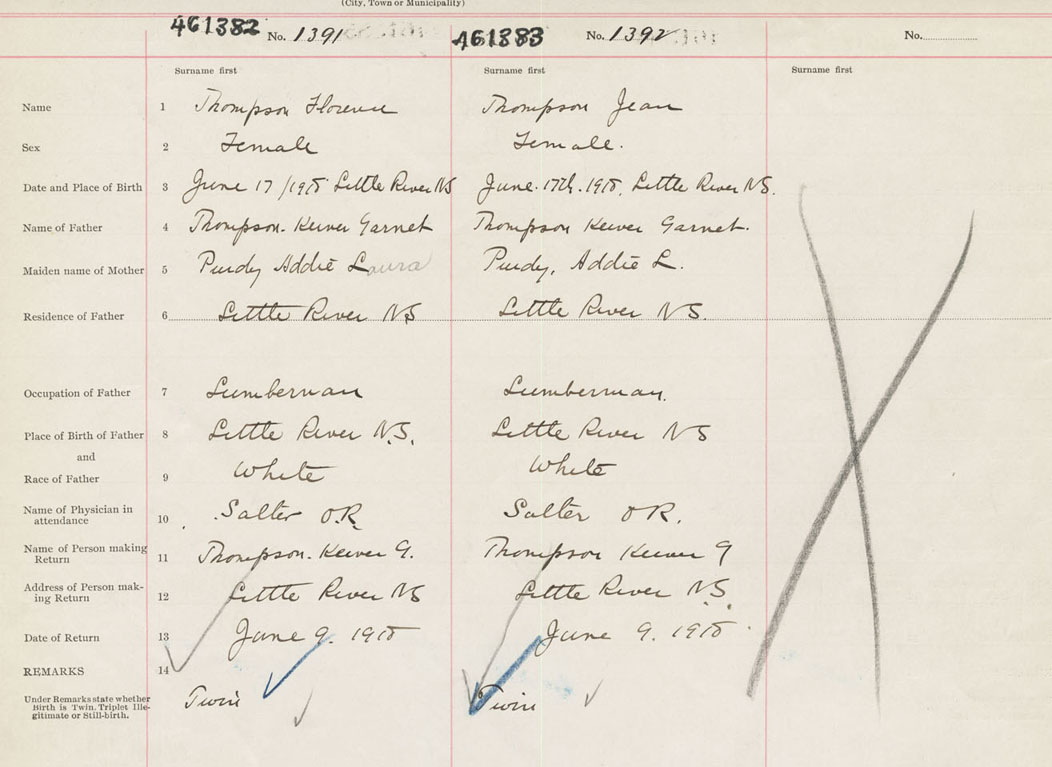 (City, Town or Municipality)
461382 No. 1391 461383 No. 1392 No.
Surname first Surname first Surname first
Name 1 Thompson Florence Thompson Jean
Sex 2 Female Female.
Date and Place of Birth 3 June Little River NS June. 17th. Little River NS.
Name of Father 4 Thompson. Garnet Thompson Garnet.
Maiden name of Mother 5 Purdy Addie Laura Purdy, Addie L.
Residence of Father 6 Little River NS Little River NS.
Occupation of Father 7 Lumberman Lumberman.
Place of Birth of Father 8 Little River N.S. Little River NS
and
Race of Father 9 White White
Name of Physician in
attendance 10 Salter O.R. Salter O R.
Name of Person making
Return 11 Thompson. G. Thompson G
Address of Person mak-
ing Return 12 Little River NS Little River N.S.
Date of Return 13 June 9. June 9.
REMARKS 14
Under Remarks state whether
Birth is Twin. Triplet Ille-
gitimate or Still-birth. Twin Twin